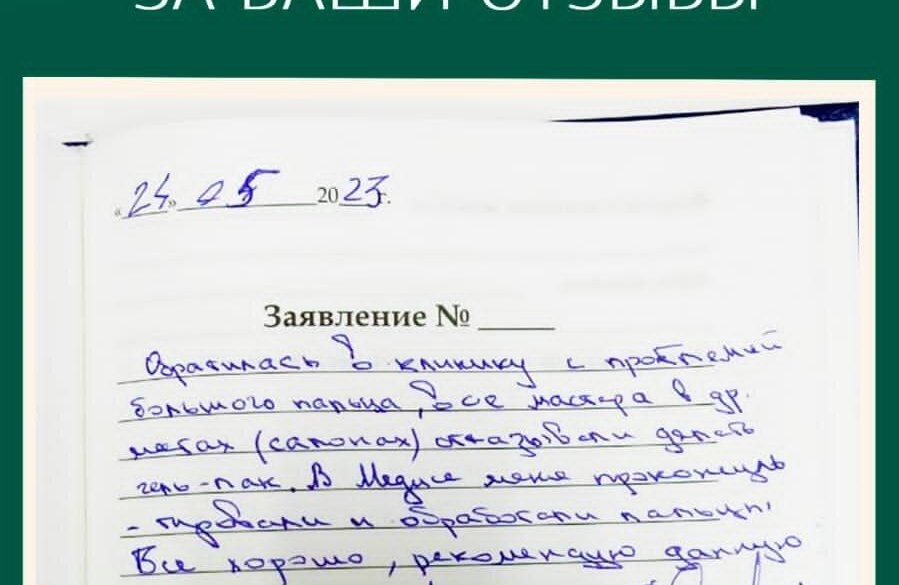 ЗА ВАШИ ОТЗЫВЫ
"24" 05 2023г.
Заявление № ____
Обратилась в клинику с проблемой
большого пальца, все мастера в др.
метах (салонах) отказывали делать
гель-лак. В Медисе меня проконсуль
- тировали и обработали пальцы,
Все хорошо, рекомендую данную